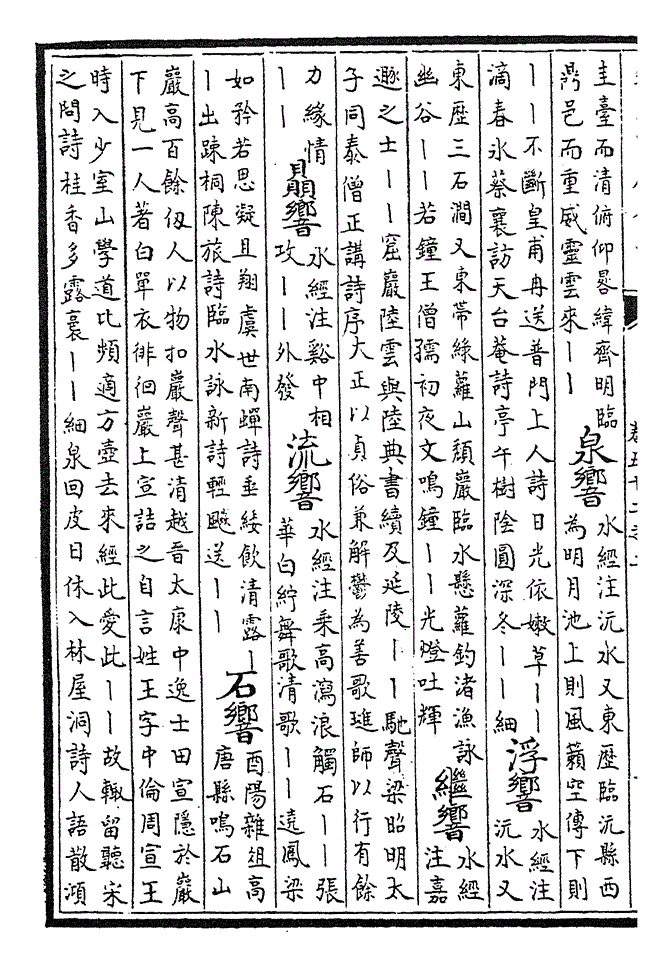 圭臺而清俯仰晷緯齊明臨
鼎邑而重威靈雲來丨丨
泉響
水經注沅水又東歷臨沅縣西
為明月池上則風籟空傳下則
丨丨不斷皇甫冉送普門上人詩日光依嫩草丨丨
滴春氷蔡襄訪天台菴詩亭午樹陰圓深冬丨丨細
浮響
水經注
沅水又
東歷三石澗又東帶綠蘿山頹巖臨水懸蘿釣渚漁詠
幽谷丨丨若鐘王僧孺初夜文鳴鐘丨丨光燈吐輝
繼響
水經
注嘉
遯之士丨丨窟巖陸雲與陸典書續及延陵丨丨馳聲梁昭明太
子同泰僧正講詩序大正以貞俗兼解鬱為善歌璡師以行有餘
力緣情
丨丨
贔響
水經注谿中相
攻丨丨外發
流響
水經注乘高瀉浪觸石丨丨張
華白紵舞歌清歌丨丨遶鳳梁
如矜若思凝且翔虞世南蟬詩垂緌飲清露丨
丨出踈桐陳旅詩臨水詠新詩輕颸送丨丨
石響
酉陽雜俎高
唐縣鳴石山
巖高百餘仞人以物扣巖聲甚清越晉太康中逸士田宣隱於巖
下見一人著白單衣徘徊巖上宣詰之自言姓王字中倫周宣王
時入少室山學道比頻適方壺去來經此愛此丨丨故輙留聽宋
之問詩桂香多露裛丨丨細泉回皮日休入林屋洞詩人語散澒